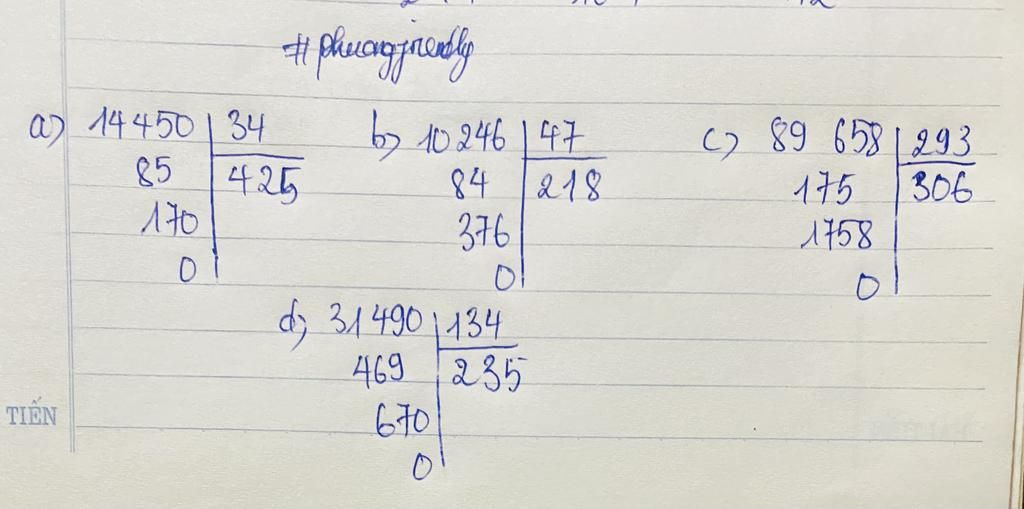 #phuongfriendly
a) 14450 34
85 425
170
0
b) 10246 47
84 218
376
0
c) 89 658 293
175 306
1758
0
d) 31490 134
469 235
670
0
TIẾN